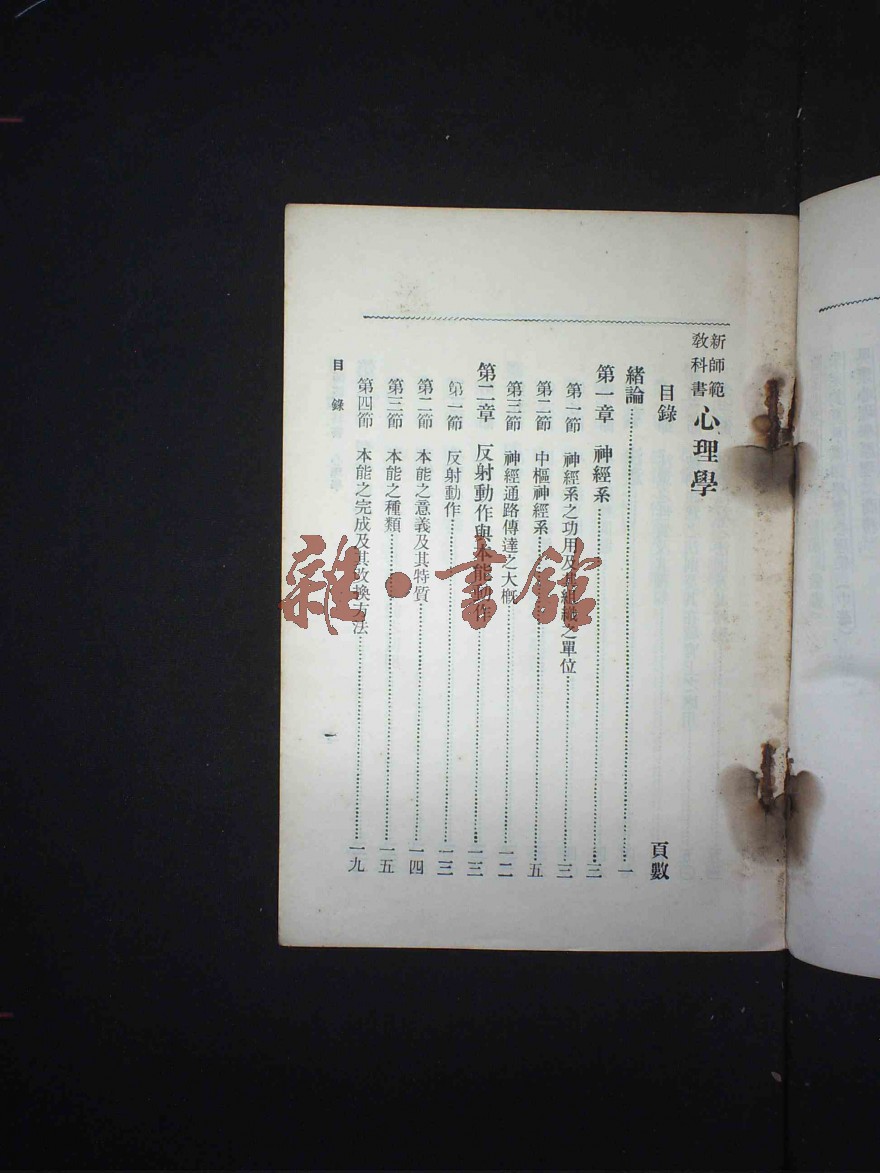 新師範教科書 心理學
目錄 頁數
緒論……一
第一章 神經系……三
第一節 神經系之功用及其組織之單位……三
第二節 中樞神經系……五
第三節 神經通路傳達之大槪……一二
第二章 反射動作與本能動作……一三
第一節 反射動作……一三
第二節 本能之意義及其特質……一四
第三節 本能之種類……一五
第四節 本能之完成及其改換方法……一九
目錄 一
雜·書館